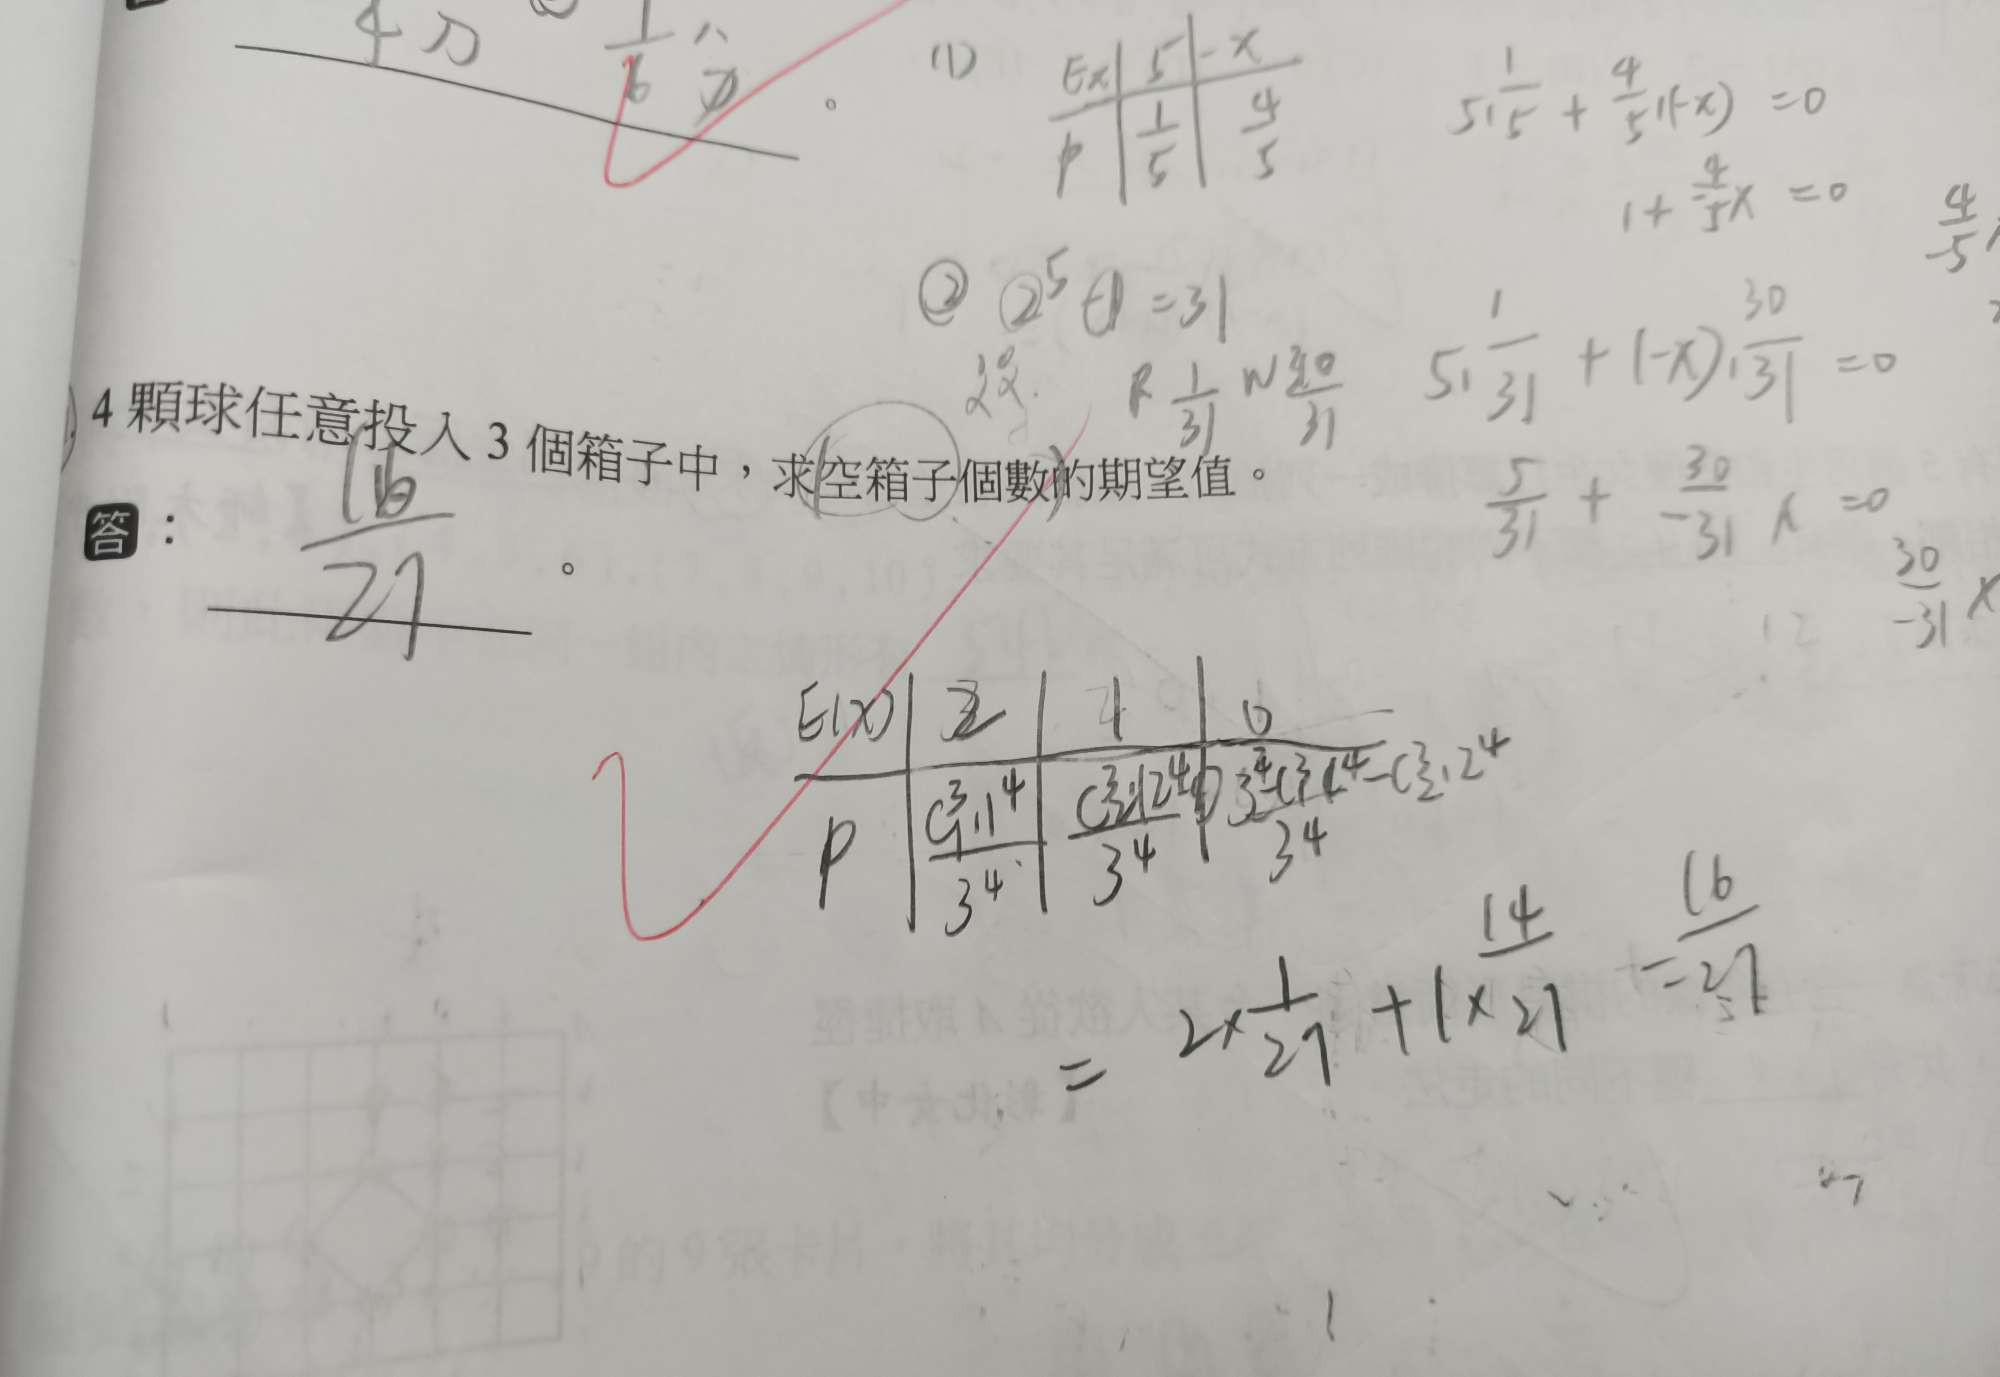 4分 ② 1/6 分 。
(1) Ex 5 -x
P 1/5 4/5
5·1/5 + 4/5·(-x) = 0
1 + -4/5x = 0
4/-5
② 2⁵-1 = 31
R 1/31 W 30/31
5·1/31 + (-x)·30/31 = 0
5/31 + 30/-31 x = 0
30/-31 x
4 顆球任意投入 3 個箱子中，求空箱子個數的期望值。
答： 16/27 。
E(x) 2 1 0
P C³₁·1⁴/3⁴ C³₂·(2⁴-2)/3⁴ 3⁴-C³₁·1⁴-C³₂·2⁴/3⁴
= 2×1/27 + 1×14/27 = 16/27